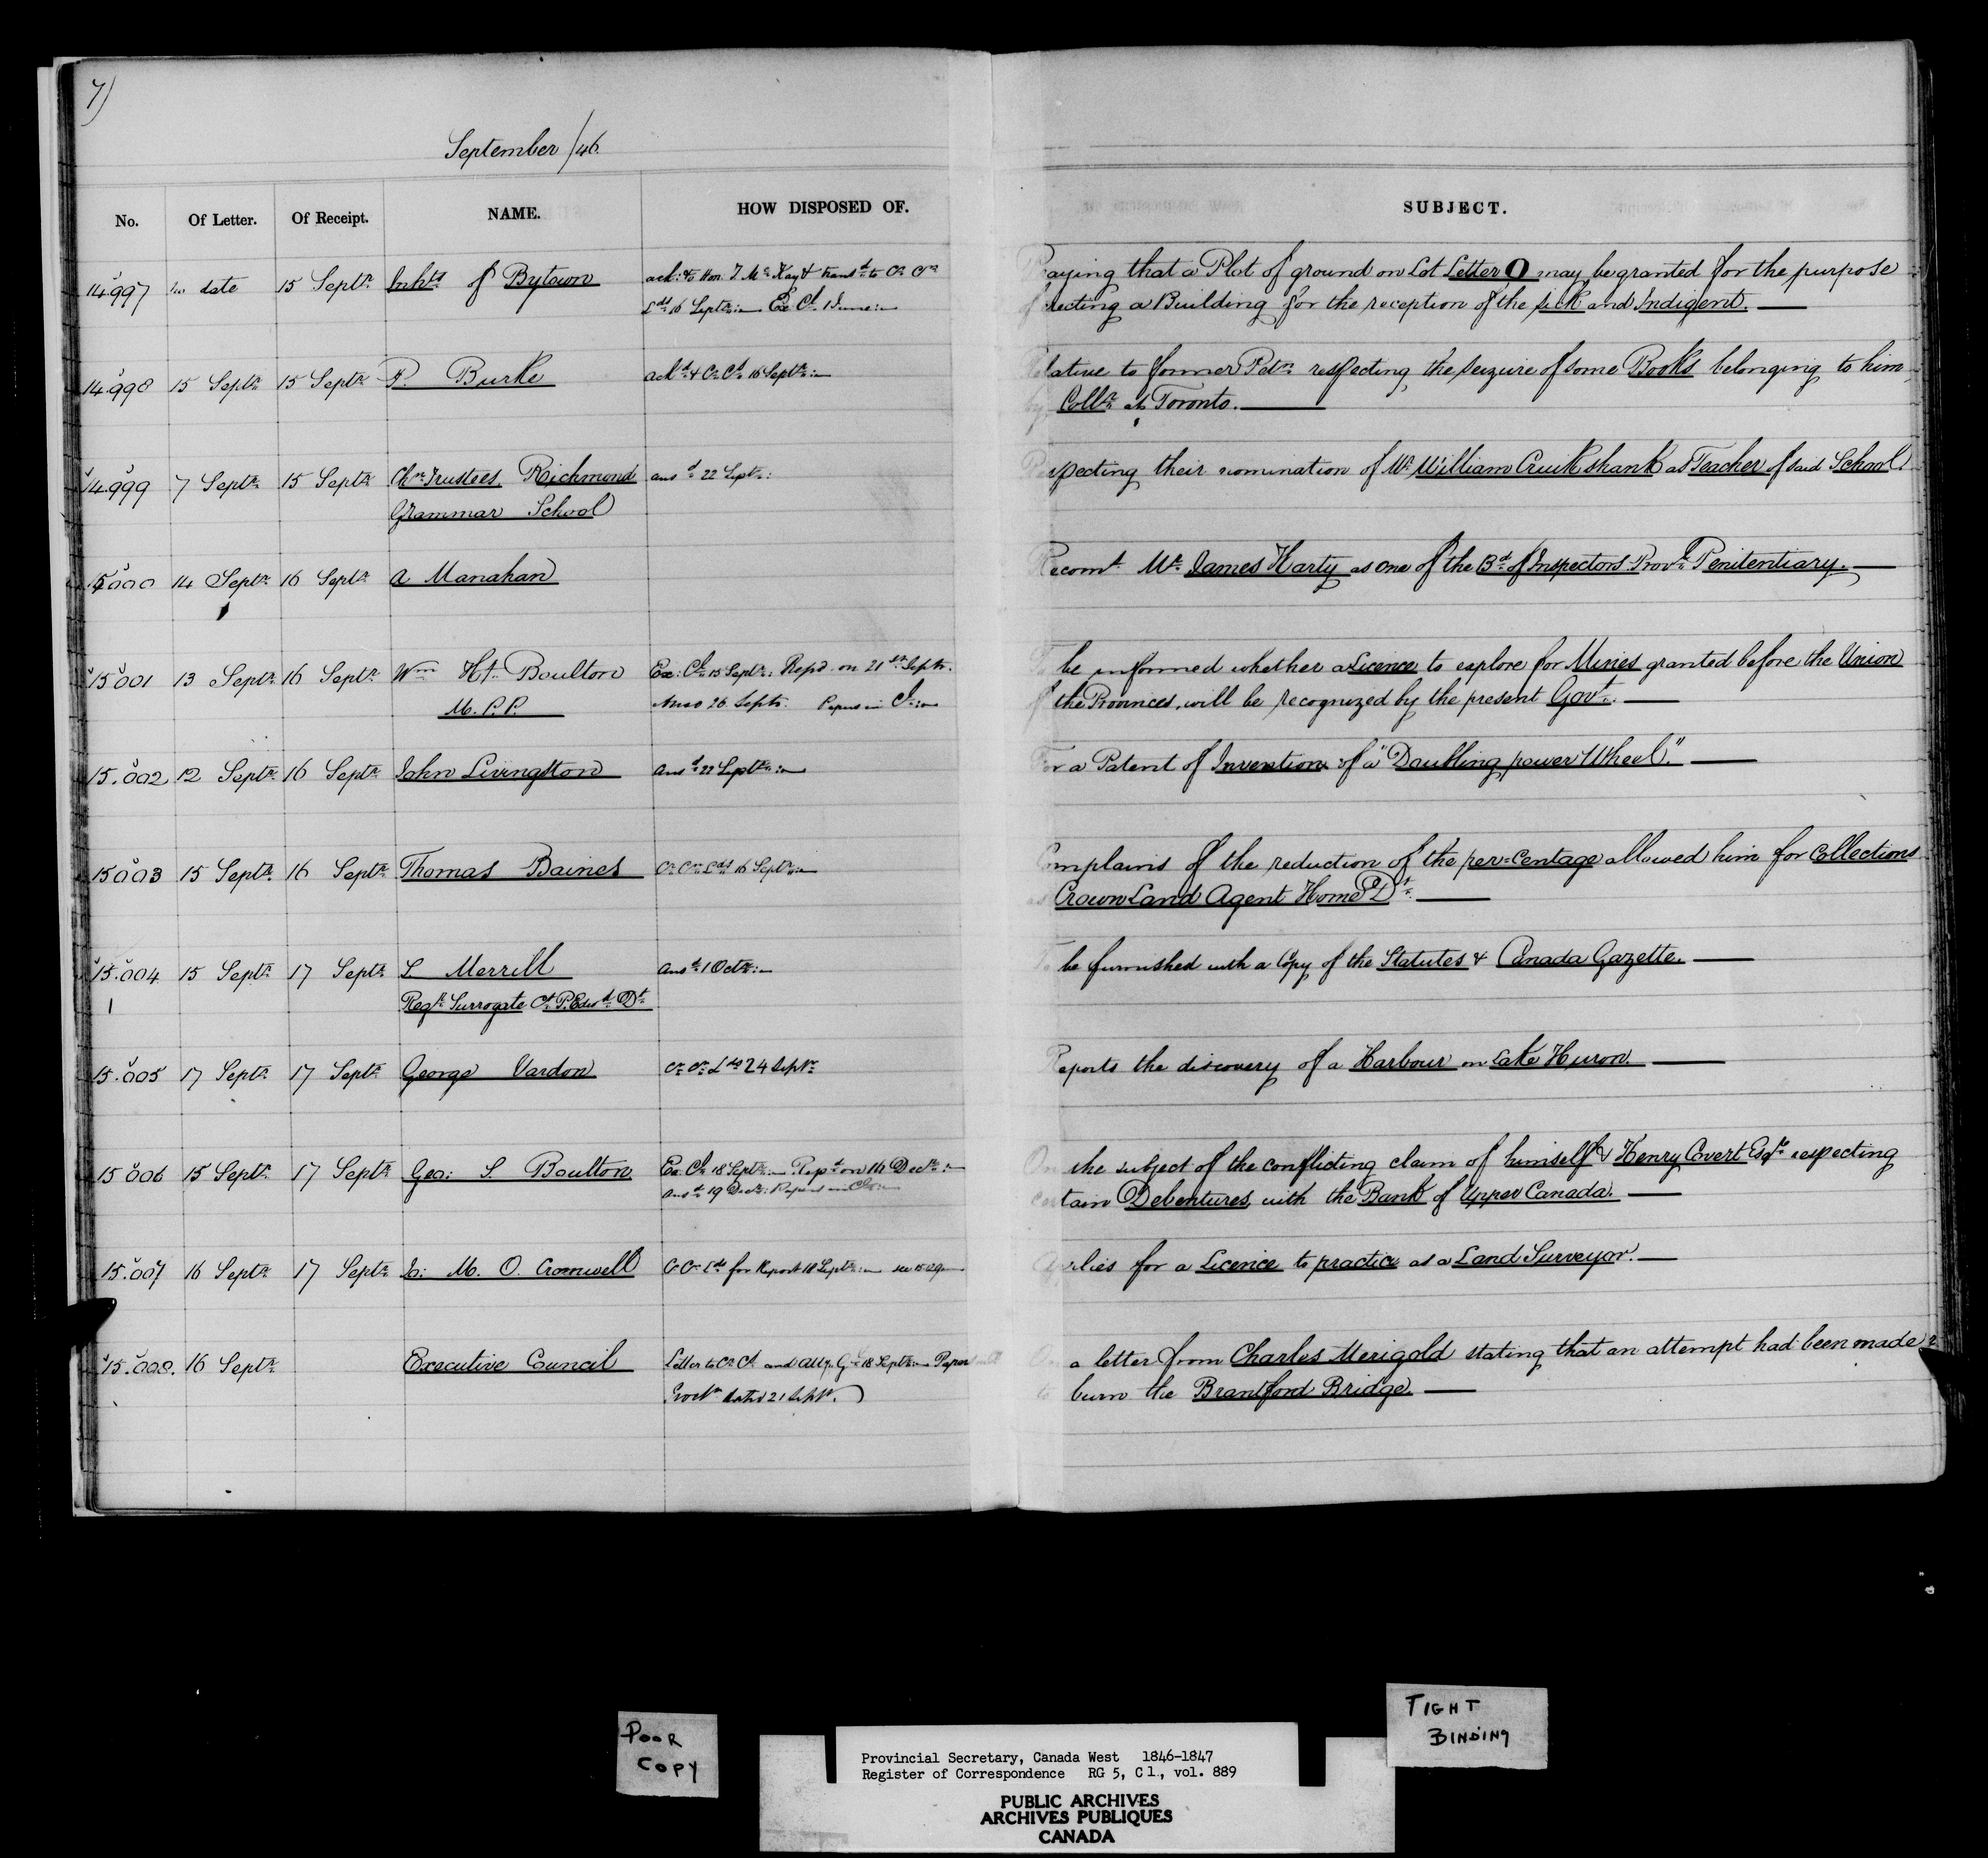 7)
September /46.
No. Of Letter. Of Receipt. NAME. HOW DISPOSED OF. SUBJECT.
14.997 no date 15 Septr. Inhts of Bytown ack: to Hon. T. McKay & transd. to Cr. Praying that a Plot of ground on Lot Letter O may be granted for the purpose
Lds 16 Septr. Ex. Cl. 1 June of erecting a Building for the reception of the sick and Indigent.
14.998 15 Septr. 15 Septr. P. Burke ackd. & Cl. 16 Septr. Relative to former Petn. respecting the seizure of some Books belonging to him,
by Collr. at Toronto.
14.999 7 Septr. 15 Septr. Chn. Trustees Richmond ansd. 22 Septr. Respecting their nomination of Mr. William Cruikshank as Teacher of said School.
Grammar School
15000 14 Septr. 16 Septr. A Manahan Recomt. Mr. James Harty as one of the Bd. of Inspectors Provl. Penitentiary.
15001 13 Septr. 16 Septr. Wm. H. Boulton Ex: Cl. 15 Septr. Repd. on 21st Septr. To be informed whether a Licence to explore for Mines granted before the Union
M.P.P. 26 Septr. Papers in of the Provinces, will be recognized by the present Govt.
15.002 12 Septr. 16 Septr. John Livingston Ansd. 22 Septr. For a Patent of Invention of a "Doubling power Wheel."
15003 15 Septr. 16 Septr. Thomas Baines Cr. Lds 16 Septr. Complains of the reduction of the per=Centage allowed him for Collections
as Crown Land Agent Home Dt.
15.004 15 Septr. 17 Septr. L Merrill Ansd. 1 Octr. To be furnished with a Copy of the Statutes & Canada Gazette.
Regr. Surrogate Ct. P. Edwd. Dt.
15.005 17 Septr. 17 Septr. George Vardon Cr. Lds 24 Septr. Reports the discovery of a Harbour on Lake Huron.
15006 15 Septr. 17 Septr. Geo: S. Boulton Ex: Cl. 18 Septr. Repd. on 16 Decr. On the subject of the conflicting claim of himself & Henry Covert Esqr. respecting
Ansd. 19 Decr. Papers in certain Debentures, with the Bank of Upper Canada.
15.007 16 Septr. 17 Septr. J: M. O. Cromwell Lds for Report 18 Septr. see Applies for a Licence to practice as a Land Surveyor.
15.008. 16 Septr. Executive Council Letter to and Atty. Gl. 18 Septr. Papers On a letter from Charles Merigold stating that an attempt had been made
dated 21 Septr. to burn the Brantford Bridge.
POOR
COPY
TIGHT
BINDING
Provincial Secretary, Canada West 1846-1847
Register of Correspondence RG 5, C 1., vol. 889
PUBLIC ARCHIVES
ARCHIVES PUBLIQUES
CANADA